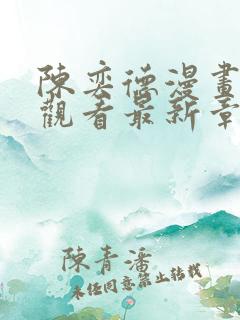 陳奕德漫畫
觀看最新章
陳青潘
未任同意禁止转载